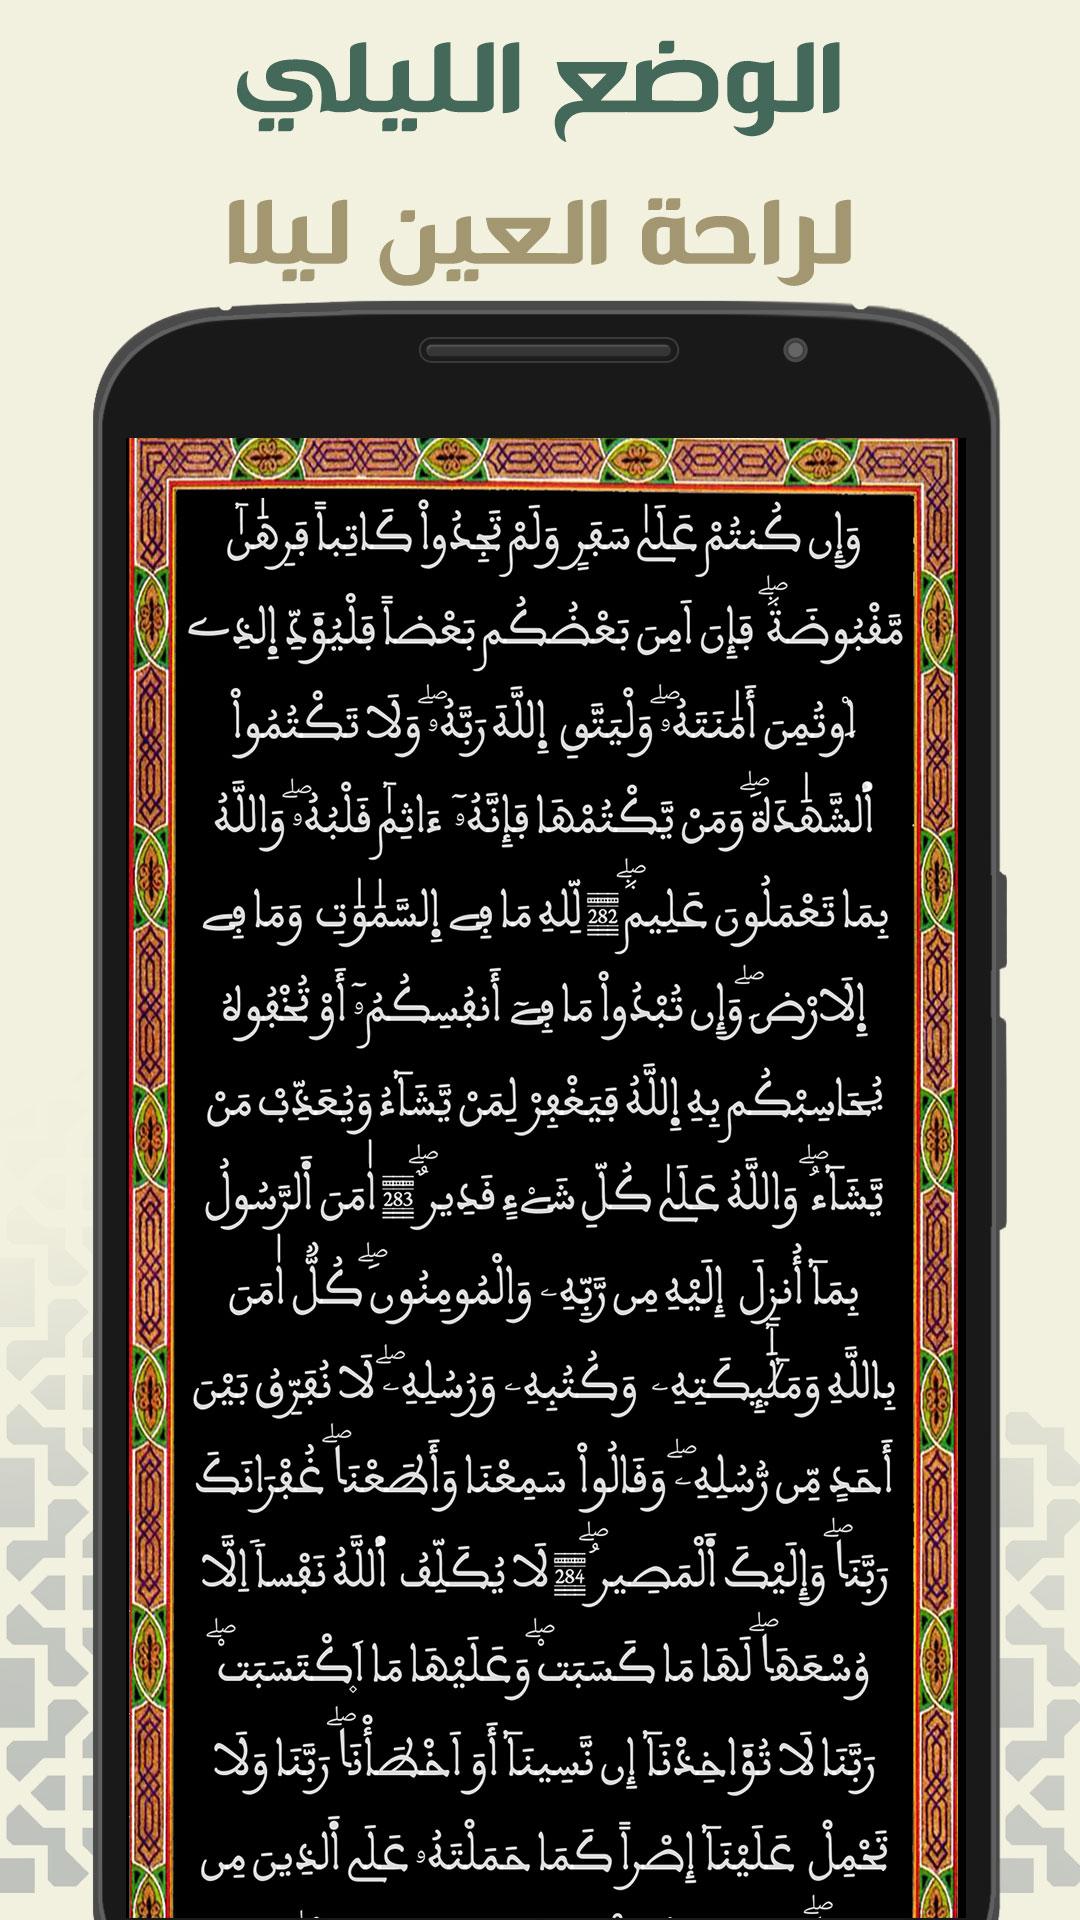 الوضع الليلي
لراحة العين ليلا
وَإِن كُنتُمْ عَلَىٰ سَفَرٍ وَلَمْ تَجِدُواْ كَاتِباً فَرِهَٰنٌ
مَّقْبُوضَةٌۖ فَإِنَ اَمِنَ بَعْضُكُم بَعْضاً فَلْيُؤَدِّ اِ۬لذِے
اِ۟وتُمِنَ أَمَٰنَتَهُۥۖ وَلْيَتَّقِ اِ۬للَّهَ رَبَّهُۥۖ وَلَا تَكْتُمُواْ
اُ۬لشَّهَٰدَةَۖ وَمَنْ يَّكْتُمْهَا فَإِنَّهُۥٓ ءَاثِمٌ قَلْبُهُۥۖ وَاللَّهُ
بِمَا تَعْمَلُونَ عَلِيمٌۖ 282 لِّلهِ مَا فِے اِ۬لسَّمَٰوَٰتِ وَمَا فِے
اِ۬لَارْضِۖ وَإِن تُبْدُواْ مَا فِےٓ أَنفُسِكُمُۥٓ أَوْ تُخْفُوهُ
يُحَاسِبْكُم بِهِ اِ۬للَّهُ فَيَغْفِرْ لِمَنْ يَّشَآءُ وَيُعَذِّبْ مَنْ
يَّشَآءُۖ وَاللَّهُ عَلَىٰ كُلِّ شَےْءٍ قَدِيرٌۖ 283 اٰمَنَ اَ۬لرَّسُولُ
بِمَآ أُنزِلَ إِلَيْهِ مِن رَّبِّهِۦ وَالْمُومِنُونَۖ كُلٌّ اٰمَنَ
بِاللَّهِ وَمَلَٰٓئِكَتِهِۦ وَكُتُبِهِۦ وَرُسُلِهِۦۖ لَا نُفَرِّقُ بَيْنَ
أَحَدٍ مِّن رُّسُلِهِۦۖ وَقَالُواْ سَمِعْنَا وَأَطَعْنَاۖ غُفْرَانَكَ
رَبَّنَاۖ وَإِلَيْكَ اَ۬لْمَصِيرُۖ 284 لَا يُكَلِّفُ اُ۬للَّهُ نَفْساً اِلَّا
وُسْعَهَاۖ لَهَا مَا كَسَبَتْۖ وَعَلَيْهَا مَا اَ۪كْتَسَبَتْۖ
رَبَّنَا لَا تُؤَاخِذْنَآ إِن نَّسِينَآ أَوَ اَخْطَأْنَاۖ رَبَّنَا وَلَا
تَحْمِلْ عَلَيْنَآ إِصْراً كَمَا حَمَلْتَهُۥ عَلَى اَ۬لذِينَ مِن